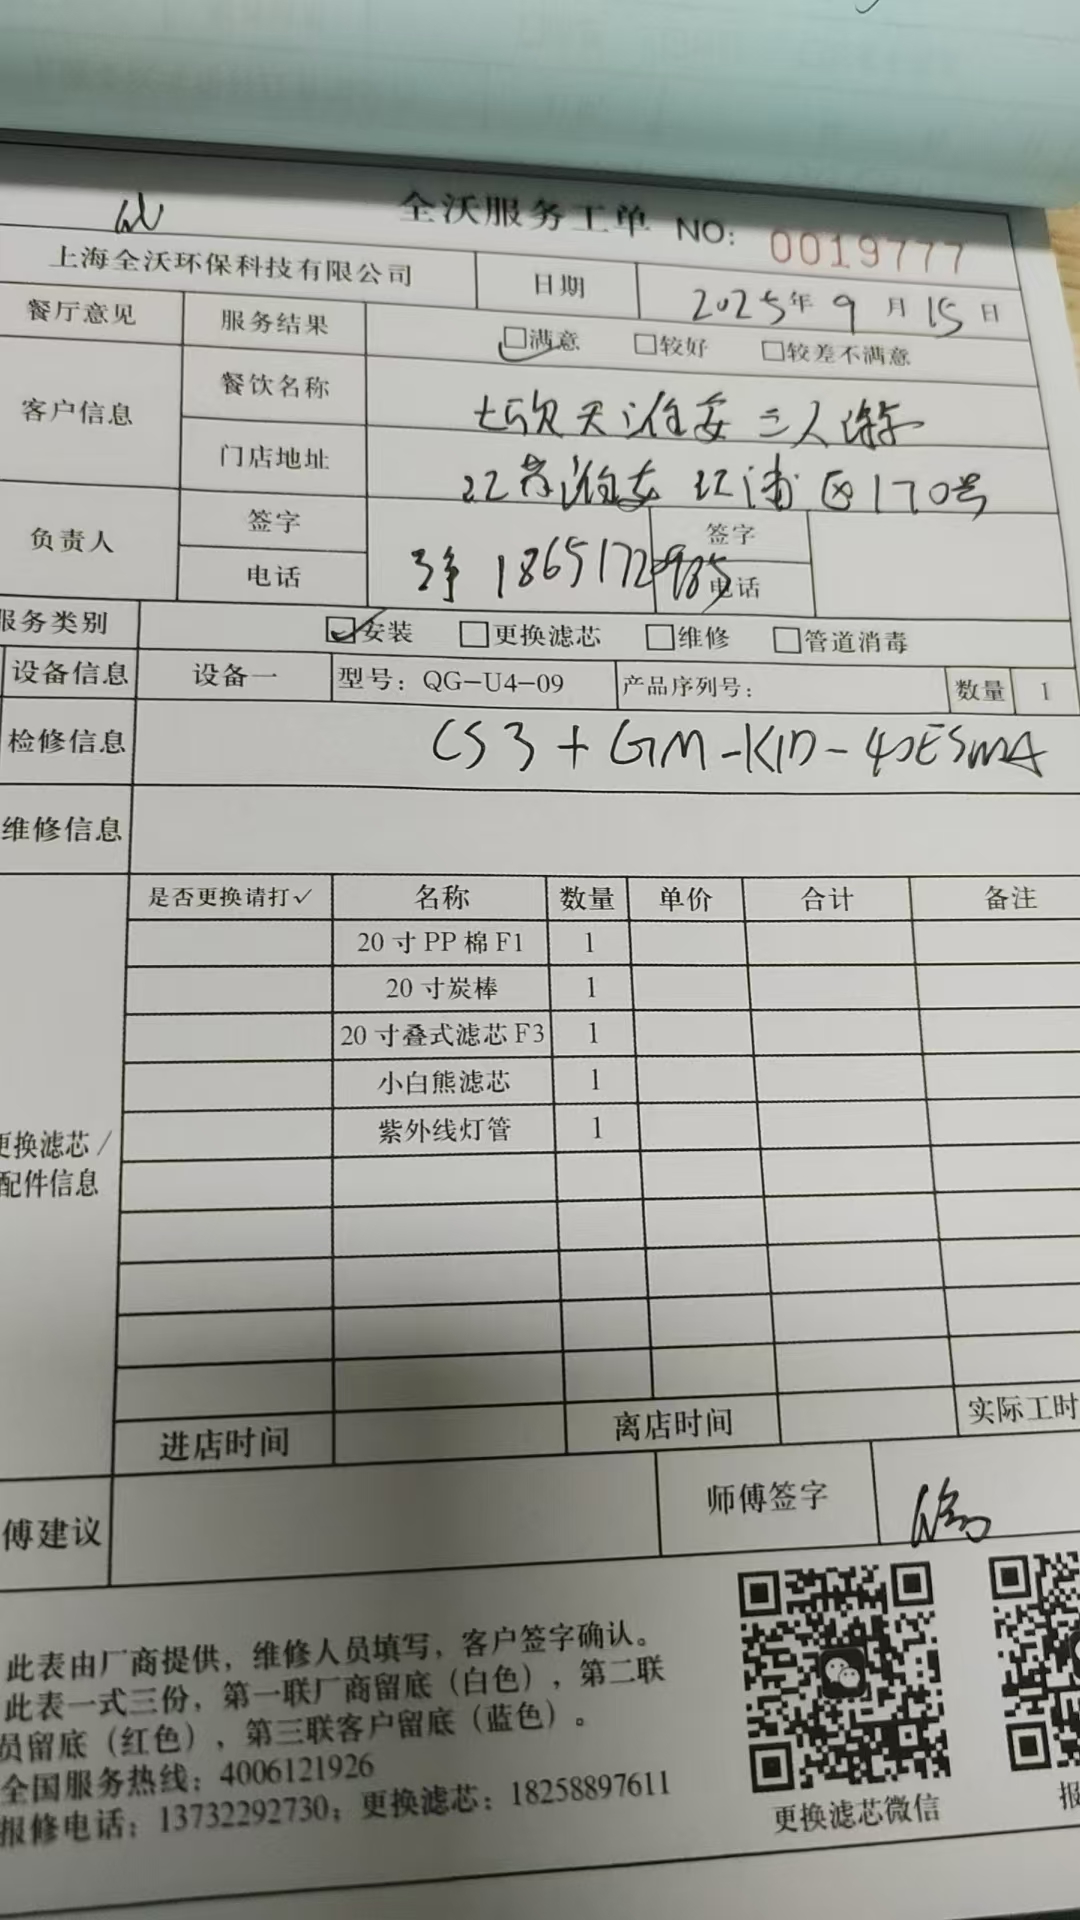 全沃服务工单 NO: 0019777
上海全沃环保科技有限公司 日期 2025年9月15日
餐厅意见 服务结果 □满意 □较好 □较差不满意
客户信息 餐饮名称 七欣天淮安三人游
门店地址 江苏淮安 江浦区170号
负责人 签字 签字
电话 18651720985 电话
服务类别 安装 □更换滤芯 □维修 □管道消毒
设备信息 设备一 型号：QG-U4-09 产品序列号： 数量 1
检修信息 CS3+GM-K1D-40ESMA
维修信息
是否更换请打✓ 名称 数量 单价 合计 备注
20寸PP棉F1 1
20寸炭棒 1
20寸叠式滤芯F3 1
小白熊滤芯 1
紫外线灯管 1
更换滤芯/
配件信息
进店时间 离店时间 实际工时
傅建议 师傅签字
此表由厂商提供，维修人员填写，客户签字确认。
此表一式三份，第一联厂商留底（白色），第二联
员留底（红色），第三联客户留底（蓝色）。
全国服务热线：4006121926
报修电话：13732292730；更换滤芯：18258897611
更换滤芯微信
报